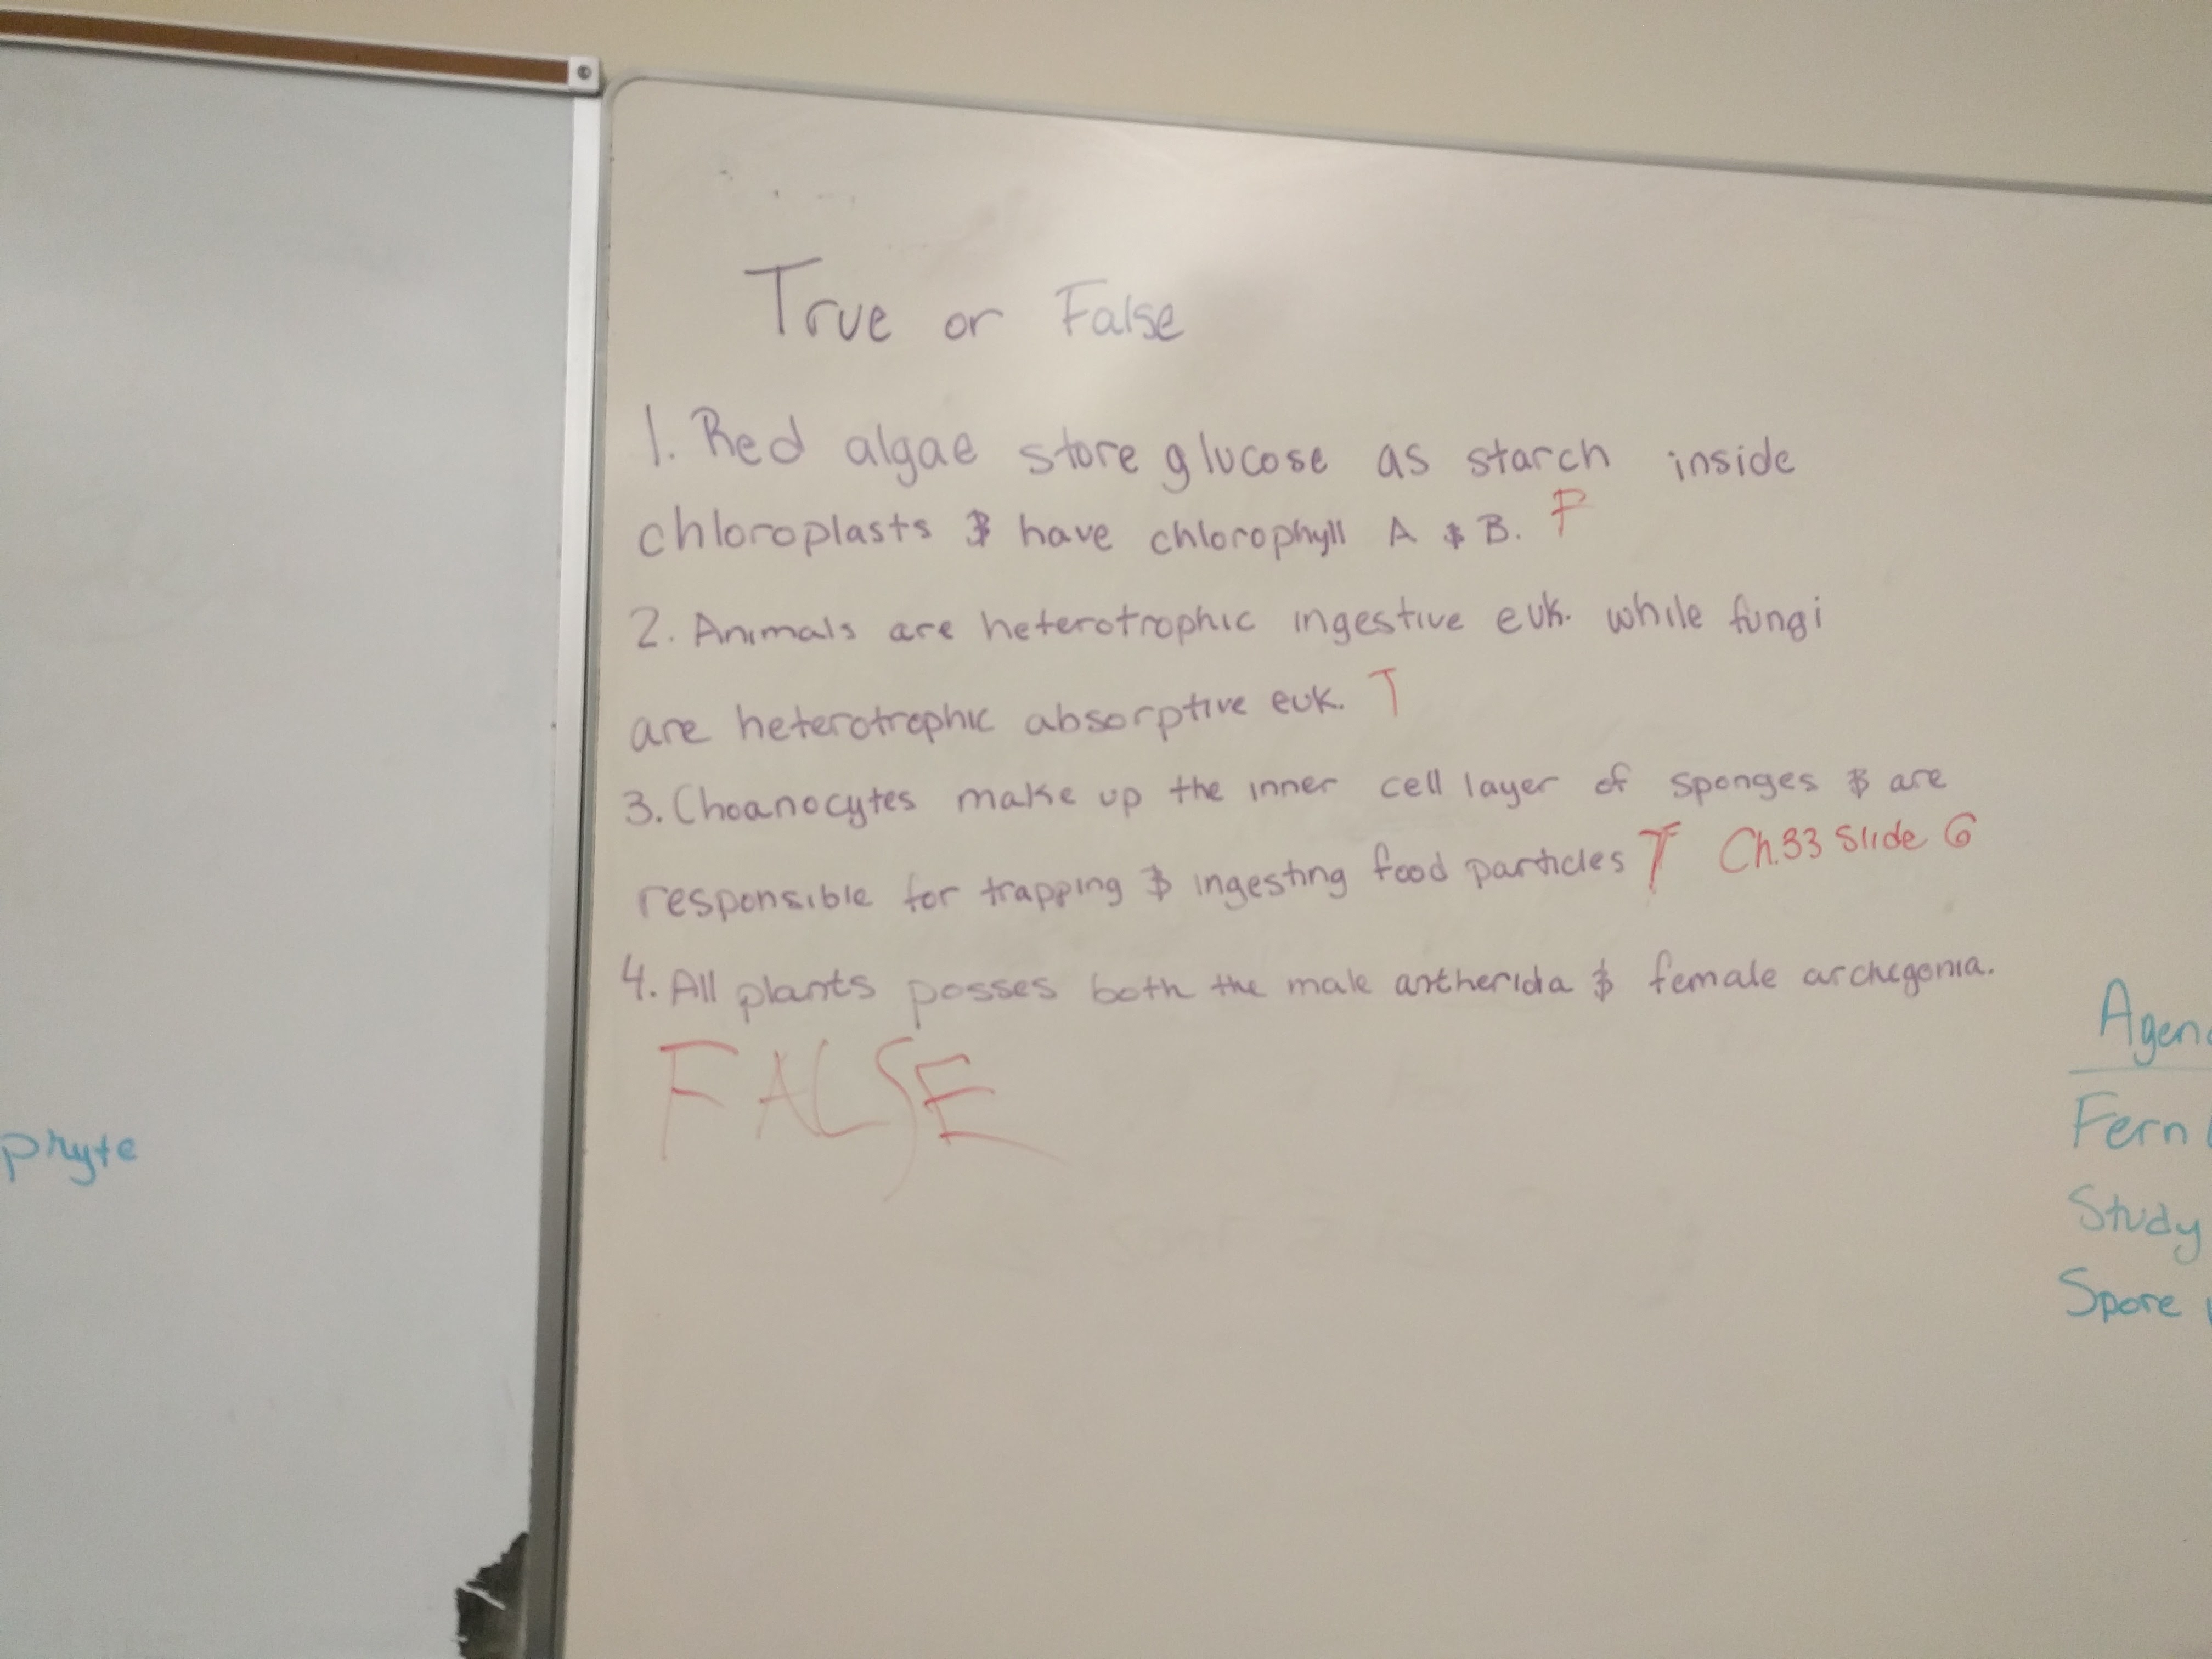 True or False
1. Red algae store glucose as starch inside
chloroplasts & have chlorophyll A & B. F
2. Animals are heterotrophic ingestive euk. while fungi
are heterotrophic absorptive euk. T
3. Choanocytes make up the inner cell layer of sponges & are
responsible for trapping & ingesting food particles T Ch.33 Slide 6
4. All plants posses both the male antherida & female archegonia.
FALSE
phyte
Agen
Fern
Study
Spore